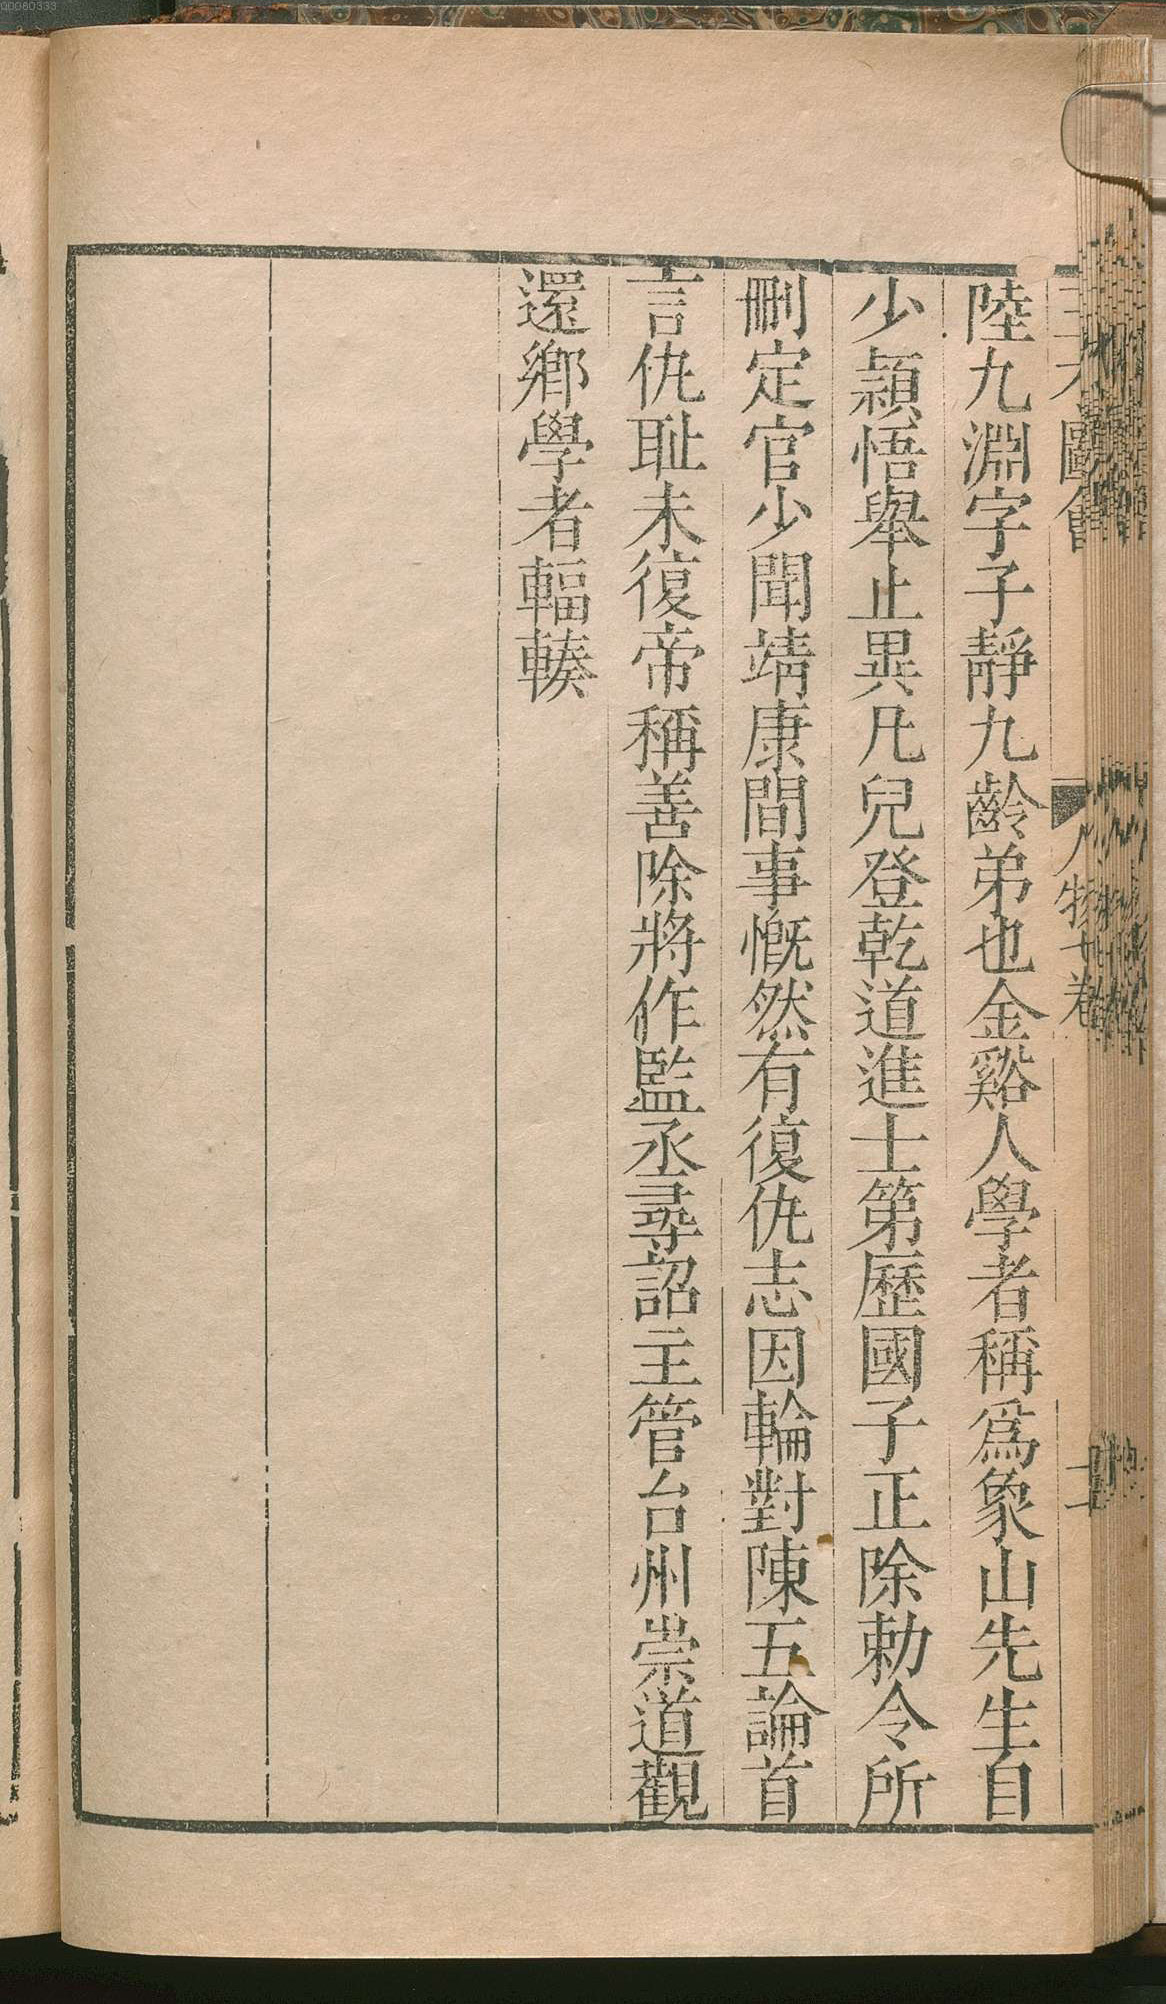 陸九淵字子靜九齡弟也金谿人學者稱爲象山先生自
少穎悟舉止異凡兒登乾道進士第歷國子正除勅令所
刪定官少聞靖康間事慨然有復仇志因輪對陳五論首
言仇耻未復帝稱善除將作監丞尋詔主管台州崇道觀
還鄉學者輻輳
圖會
人物七卷
00060333